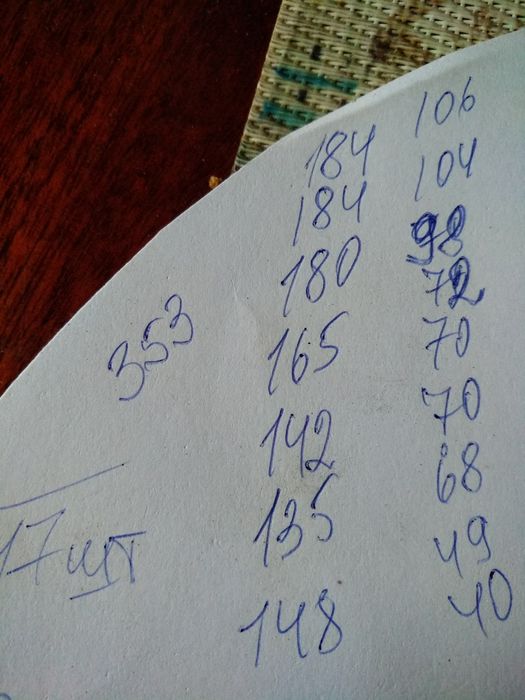 353
17 шт
184
184
180
165
142
135
148
106
104
98
72
70
70
68
49
40